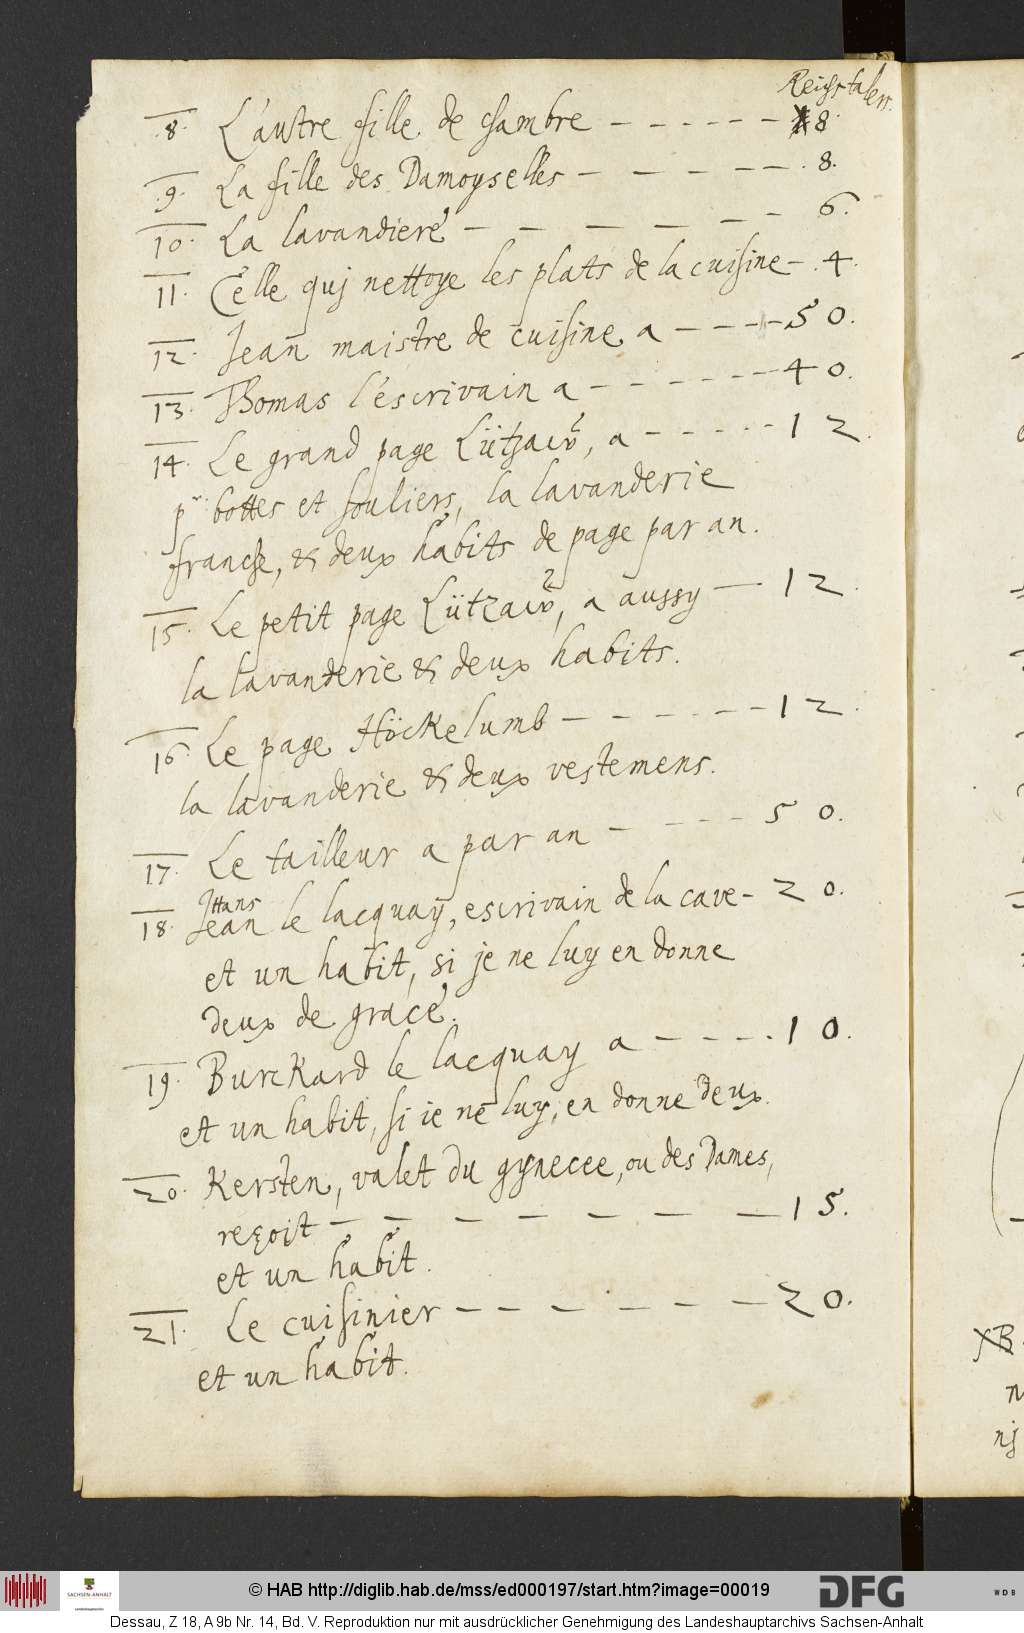 Reichstaler.
8. L'austre fille. de chambre – – – – – – 8.
9. La fille des Damoyselles – – – – – . 8.
10. La lavandiere – – – – – – 6.
11. Celle quj nettoye les plats de la cuisine – . 4.
12. Jean maistre de cuisine a – – – – 50.
13. Thomas l'éscrivain a – – – – – – 40.
14. Le grand page Lützaw, a – – – – – 12.
pr. bottes et souliers, la lavanderie
franche, & deux habits de page par an.
15. Le petit page Lützaw 2, a aussy – 12.
la lavanderie & deux habits.
16. Le page Höckelumb – – – – – – 12.
la lavanderie & deux vestemens.
17. Le tailleur a par an – – – – 50.
Hans
18. Jean le lacquaÿ, escrivain de la cave – 20.
et un habit, si je ne luy en donne
deux de grace.
19. Burckard le lacquay a – – – – . 10.
et un habit, si ie ne luy, en donne deux.
20. Kersten, valet du gynecee, ou des Dames,
reçoit – – – – – – – 15.
et un habit.
21. Le cuisinier – – – – – – 20.
et un habit.
NB.
© HAB http://diglib.hab.de/mss/ed000197/start.htm?image=00019
SACHSEN-ANHALT
DFG
WDB
Dessau, Z 18, A 9b Nr. 14, Bd. V. Reproduktion nur mit ausdrücklicher Genehmigung des Landeshauptarchivs Sachsen-Anhalt